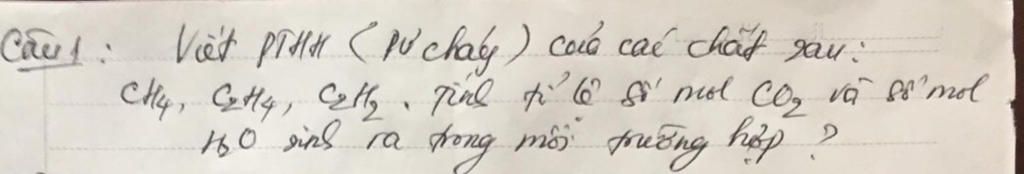 Câu 1: Viết PTHH (PƯ cháy) của các chất sau:
CH4, C2H4, C2H2. Tính tỉ lệ số mol CO2 và số mol
H2O sinh ra trong mỗi trường hợp?